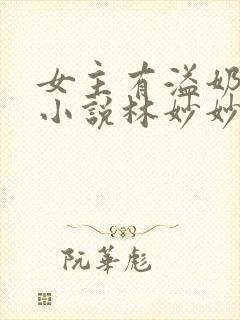 女主有溢奶
小说林妙妙
阮华彪